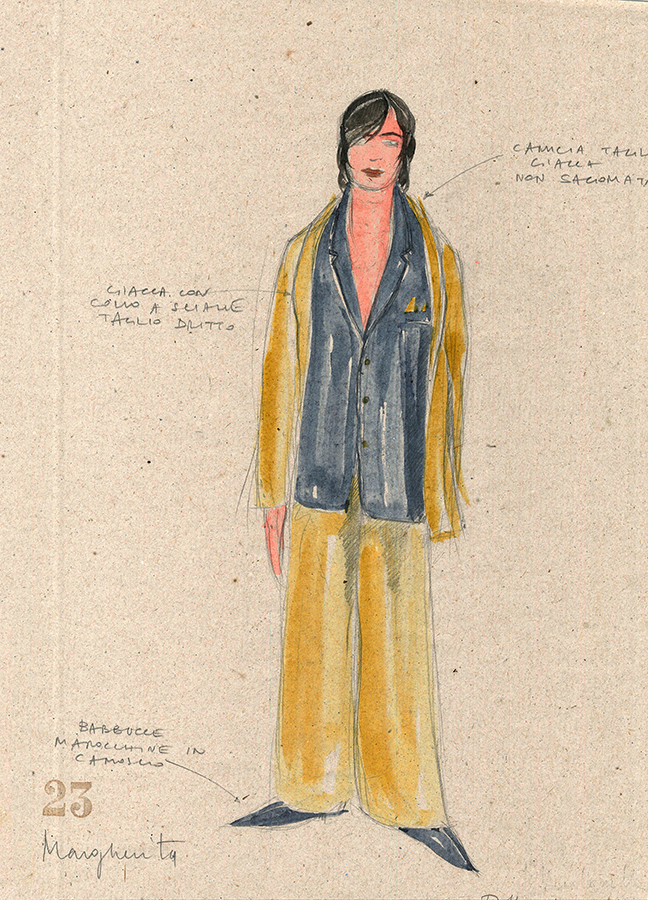 CAMICIA TAGL
GIACCA
NON SAGOMATA
GIACCA CON
COLLO A SCIALLE
TAGLIO DRITTO
BABBUCCE
MAROCCHINE IN
CAMOSCIO
23
Margherita